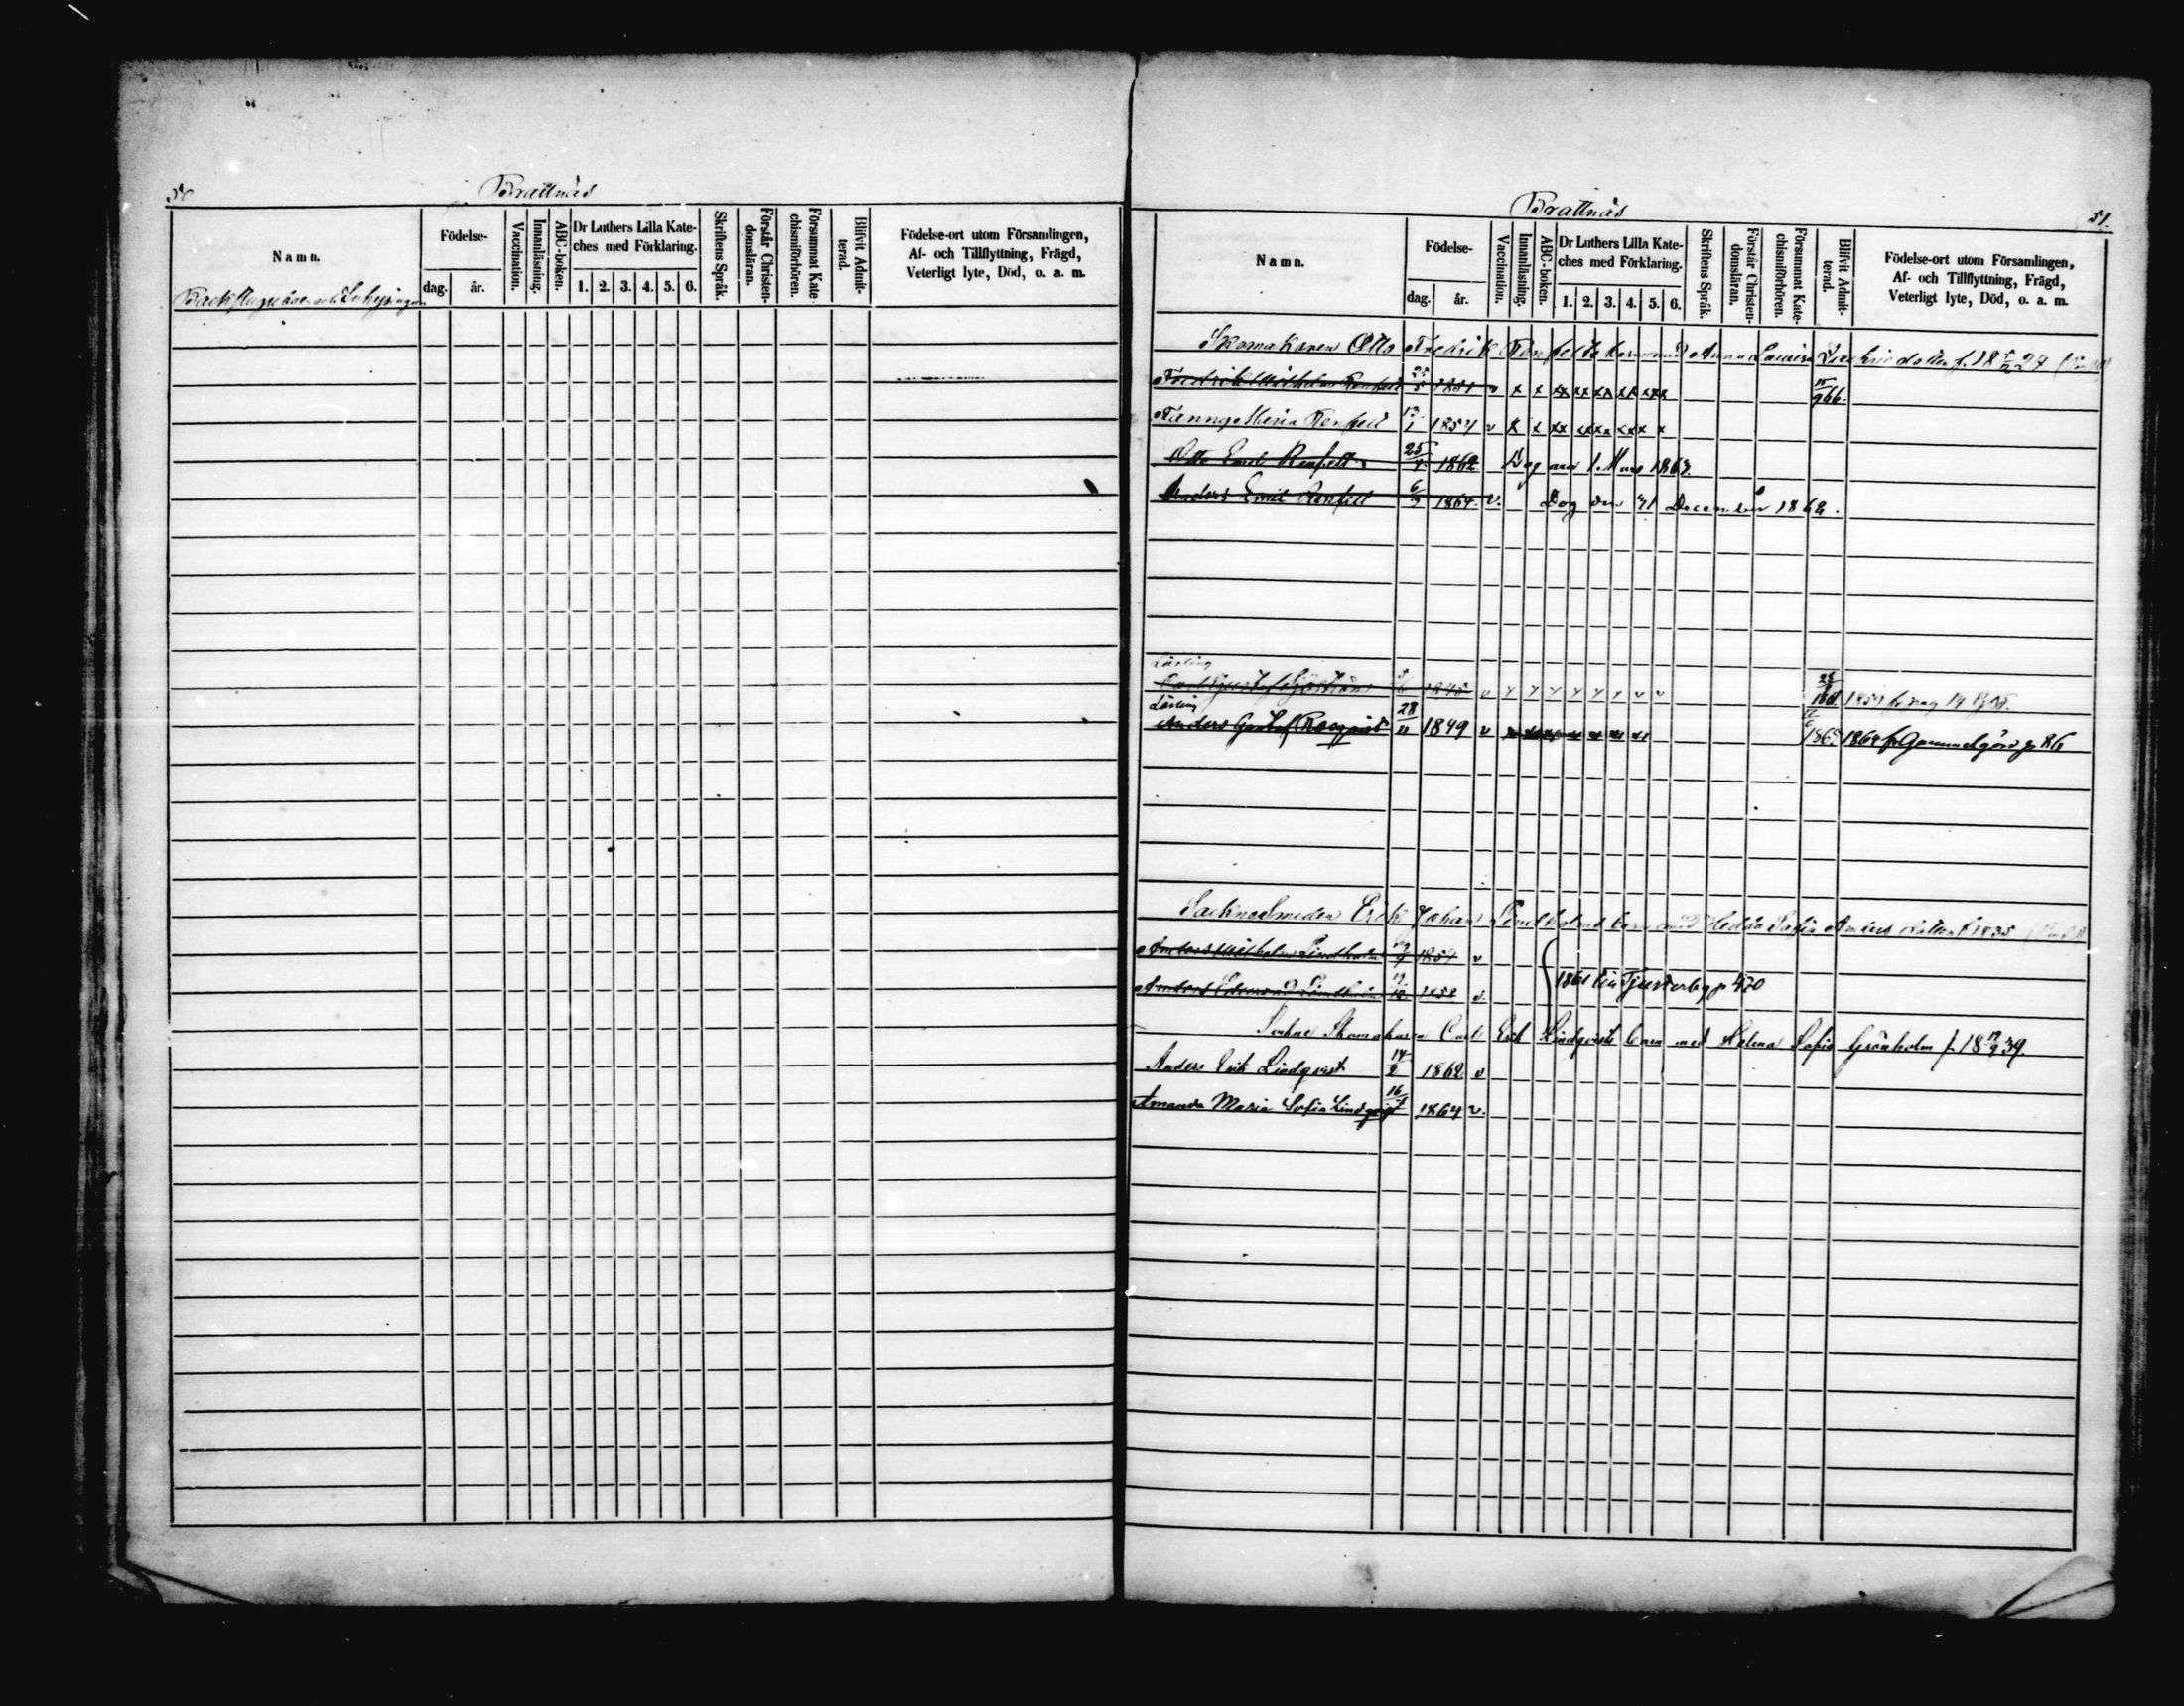 50
Brattnäs
Namn.
Födelse-
dag. år.
Vaccination.
Innanläsning.
ABC-boken.
Dr Luthers Lilla Kate-
ches med Förklaring.
1. 2. 3. 4. 5. 6.
Skriftens Språk.
Förstår Christen-
domsläran.
Försummat Kate-
chismiförhören.
Blifvit Admit-
terad.
Födelse-ort utom Församlingen,
Af- och Tillflyttning, Frägd,
Veterligt lyte, Död, o. a. m.
Backstugubor och Inhysingar
Brattnäs
51.
Namn.
Födelse-
dag. år.
Vaccination.
Innanläsning.
ABC-boken.
Dr Luthers Lilla Kate-
ches med Förklaring.
1. 2. 3. 4. 5. 6.
Skriftens Språk.
Förstår Christen-
domsläran.
Försummat Kate-
chismiförhören.
Blifvit Admit-
terad.
Födelse-ort utom Församlingen,
Af- och Tillflyttning, Frägd,
Veterligt lyte, Död, o. a. m.
Skomakaren Otto Fredrik Renfelts barn med Anna Lovisa
Fredrik Wilhelm Renfelt 1851 v x x xx xx xx xx xxx
Maria Renfelt 1854 v x x xx xxx xxx x
Otto Emil Renfelt 25 1862 Dog den 1 Mars 1863
Anders Emil Renfelt 6/3 1864 v. Dog den 31 December
Lärling
Carl Gustaf Sjöström v
Lärling
Anders Gustaf 28/11 1849 v 1865 1864 fr Gammelgård p 86
Smeden Erik Johan Lindholms barn med Hedda Sofia Anders dotter f 1835
Anders Wilhelm Lindholm 1857 v
Anders Edvard Lindholm 1858 v. 1861 till Tjusterby p 420
Sockne Skomakaren Carl Erik Lindqvists barn med Helena Sofia Grönholm f. 18 39
Anders Erik Lindqvist 14/2 1862 v
Amanda Maria Sofia Lindqvist 16 1864 v.